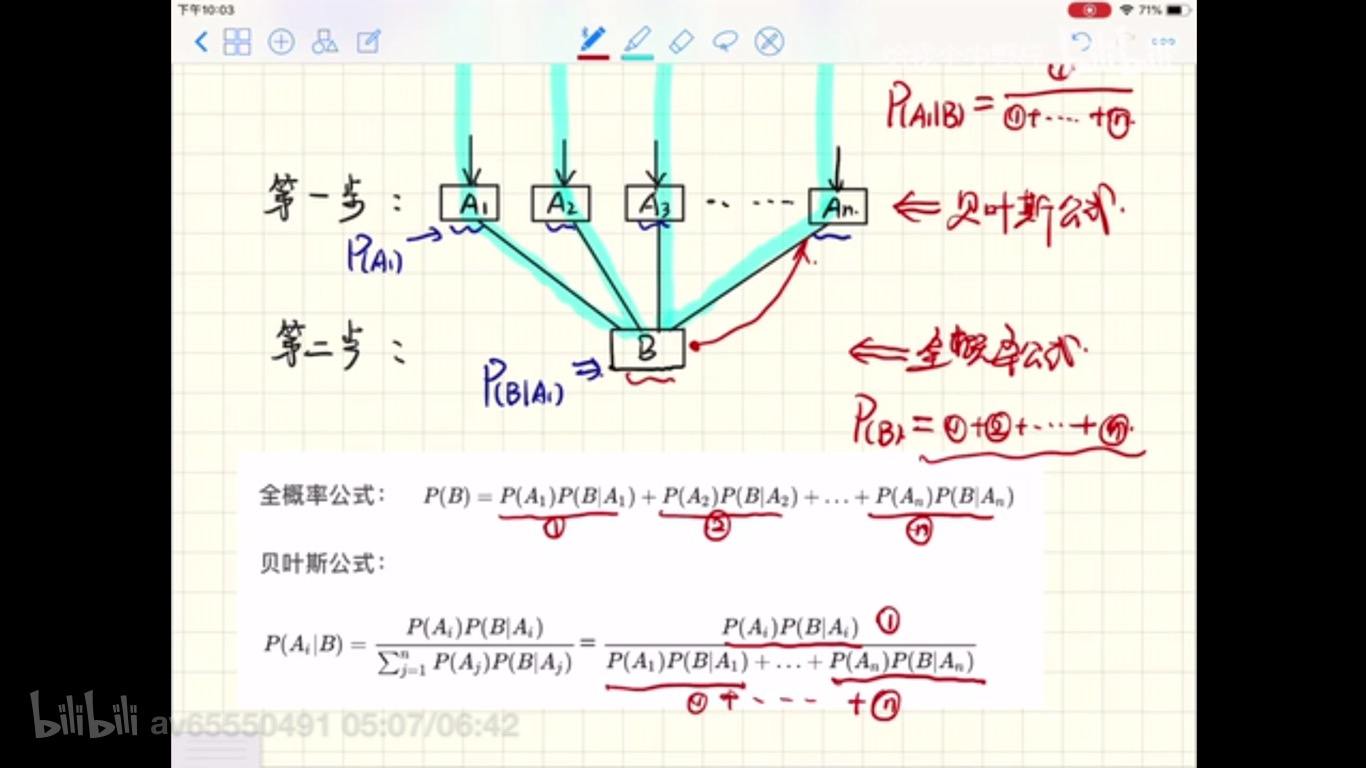 下午10:03
71%
bilibili
①
P(A₁|B) = ———
①+····+ⓝ
第一步： A₁ A₂ A₃ ····· Aₙ ⇐ 贝叶斯公式
P(A₁) →
第二步： B ⇐ 全概率公式
P(B|A₁) ⇒
P(B) = ①+②+····+ⓝ
全概率公式： P(B) = P(A₁)P(B|A₁) + P(A₂)P(B|A₂) + … + P(Aₙ)P(B|Aₙ)
① ② ⓝ
贝叶斯公式：
P(Aᵢ|B) = P(Aᵢ)P(B|Aᵢ) / ∑ⁿⱼ₌₁ P(Aⱼ)P(B|Aⱼ) = P(Aᵢ)P(B|Aᵢ) ① / P(A₁)P(B|A₁) + … + P(Aₙ)P(B|Aₙ)
①+ - --- +ⓝ
bilibili av65550491 05:07/06:42